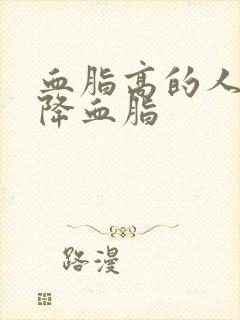 血脂高的人
降血脂
路漫